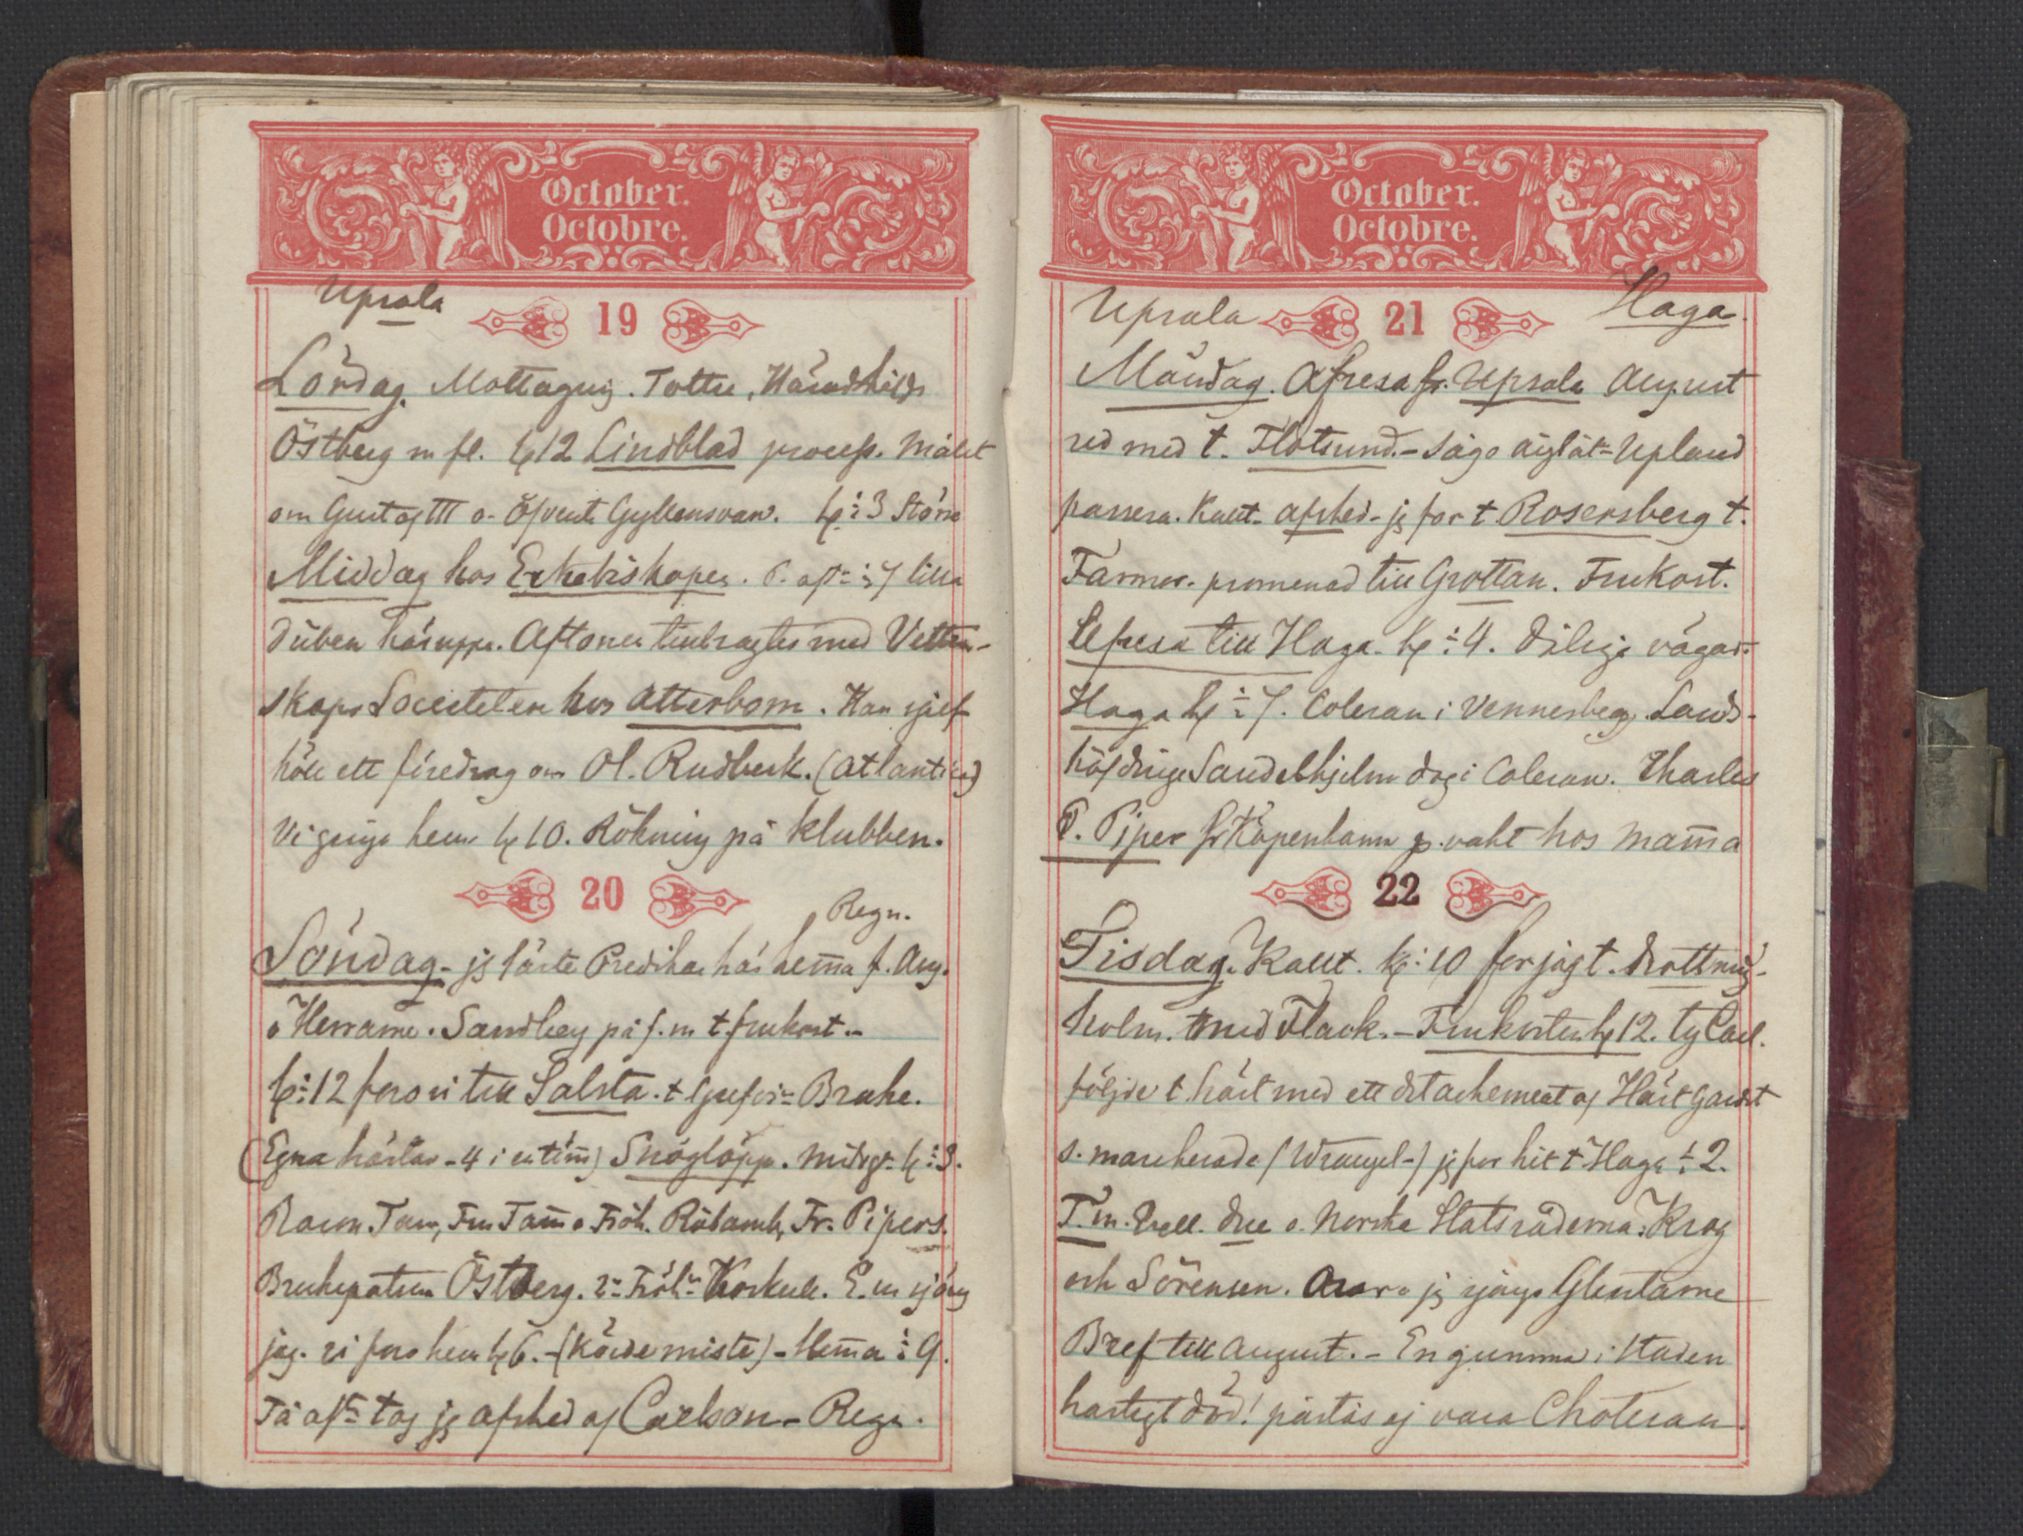 October.
Octobre.
Upsala
19
Lördag. Mottagnig. Tottie, Häradshöfd
Östberg m fl. kl 12 Lindblad process. målet
om Gustaf III o. Öfverste Gyllensvan. kl: 3 Större
Middag hos Erkebiskopen. 7 lilla
Düben häruppe. Aftonen tillbragtes med Vetten-
skaps Societeten hos Atterbom. Han sjelf
höll ett föredrag om Ol. Rudbeck. (Atlantica)
Vi gingo hem kl 10. Rökning på klubben.
20
Regn.
Söndag. jg läste Predikan här hema f. Aug.
o Herrarne. Sandberg på f.m t frukost.-
kl: 12 foro vi till Salsta. t Grefvin Brahe.
(Egna hästar - 4 i en tim) Sköglöpp. Middgn kl: 3.
Baron Tam, Fru Tam o Frök. Rålamb, Fr. Pipers.
Brukspatron Östberg. 2ne Frökn Koskull. E. m sjöng
jag. vi foro hem kl 6. - (Körde miste) - Hema : 9.
På aftn tog jg afsked af Carlson - Regn.
October.
Octobre.
Upsala
21
Haga.
Måndag. Afresa fr. Upsala August
red med t. Flotsund. - Sågo ånglåt Upland
passera. Kallt. afsked - jg for t Rosersberg t.
Farmor. promenad till Grottan. Frukost.
Afresa till Haga. kl: 4. Dåliga vägar.
Haga kl : 7. Coleran i Vennersberg. Lands-
höfdinge Sandelhjelm dog i Coleran. Charles
E. Piper fr Köpenhamn g. vakt hos Mama
22
Tisdag. Kallt. kl: 10 for jag t. Drottning-
holm. med Flack. - Frukosten kl 12. ty Carl.
följde t häst med ett detachement af Häst Gardet
s. marcherade (Wrangel-) jg for hit t Haga : 2.
F.m. Due o. Norska Statsråderna: Krog
och Sörensen. Oscar o jg sjöngo Gluntarne
Bref till August. - En gumma i Staden
hastigt död! påstås ej vara Choleran.